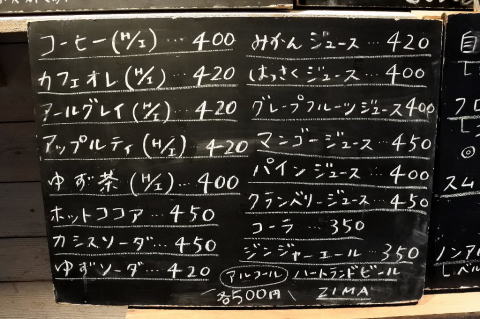 コーヒー(H/I)…400
カフェオレ(H/I)…420
アールグレイ(H/I)…420
アップルティ(H/I)…420
ゆず茶(H/I)…400
ホットココア…450
カシスソーダ…450
ゆずソーダ…420
みかんジュース…420
はっさくジュース…400
グレープフルーツジュース400
マンゴージュース…450
パインジュース…400
クランベリージュース…450
コーラ…350
ジンジャーエール…350
アルコール ハートランドビール
各500円 ZIMA
自
フロ
スム
ノンア